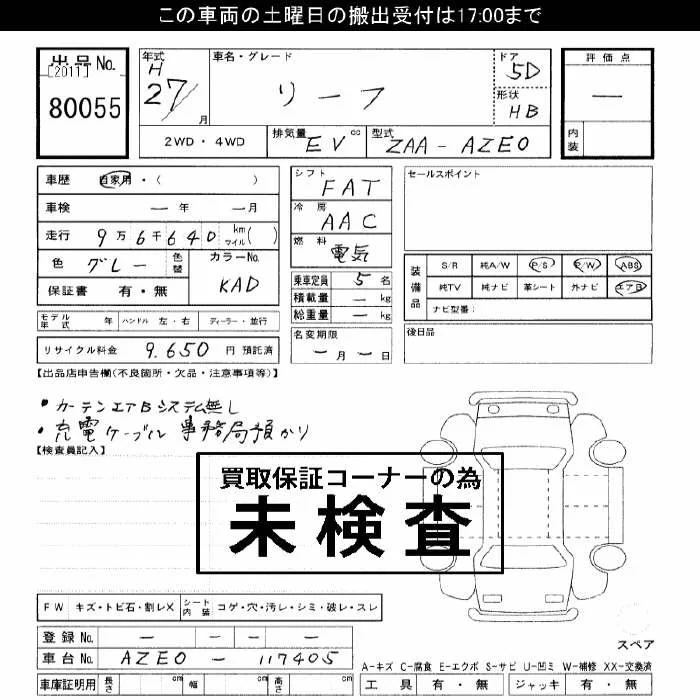 この車両の土曜日の搬出受付は17:00まで
出品No. [2011] 80055
年式 H 27/ 月
車名・グレード リーフ
ドア 5D
形状 HB
評価点 ー
内装
2WD・4WD 排気量 EV cc 型式 ZAA-AZEO
車歴 自家用・( )
車検 ー年 ー月
走行 9万6千640 km マイル( )
色 グレー 色替 カラーNo. KAD
保証書 有・無
シフト FAT
冷房 AAC
燃料 電気
乗車定員 5名
積載量 ー kg
総重量 ー kg
セールスポイント
装備品 S/R 純A/W P/S P/W ABS
純TV 純ナビ 革シート 外ナビ エアB
ナビ型番:
モデル年式 年 ハンドル 左・右 ディーラー・並行
名変期限 ー月ー日
後日品
リサイクル料金 9.650 円 預託済
【出品店申告欄(不良箇所・欠品・注意事項等)】
・カーテンエアBシステム無し
・充電ケーブル 事務局預かり
【検査員記入】
買取保証コーナーの為
未検査
FW キズ・トビ石・割レX シート内装 コゲ・穴・汚レ・シミ・破レ・スレ
登録No. ー ー ー
車台No. AZEO - 117405
車庫証明用 長さ cm 幅 cm 高さ cm
スペア
A-キズ C-腐食 E-エクボ S-サビ U-凹ミ W-補修 XX-交換済
工具 有・無 ジャッキ 有・無